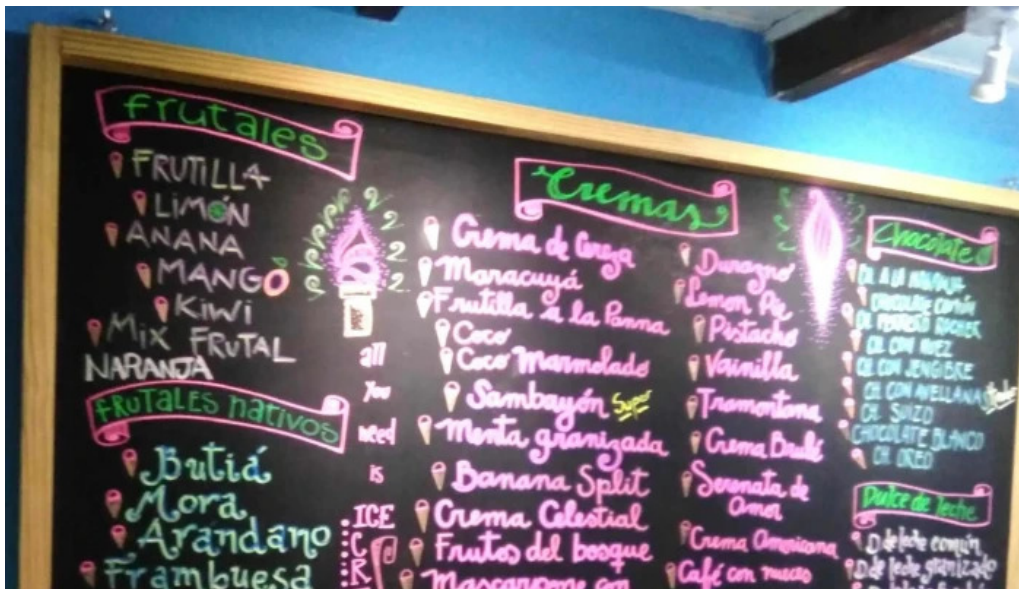 frutales
FRUTILLA
LIMÓN
ANANA
MANGO
KIWI
MIX FRUTAL
NARANJA
FRUTALES nativos
Butiá
Mora
Arándano
Frambuesa
all
You
need
is
ICE
C
R
Cremas
Crema de Cereza
Maracuyá
Frutilla a la Panna
Coco
Coco Marmolado
Sambayón Super
Menta granizada
Banana Split
Crema Celestial
Frutos del bosque
+
Mascarpone con
Durazno
Lemon Pie
Pistacho
Vainilla
Tramontana
Crema Brulé
Serenata de
Amor
Crema Americana
Café con nueces
Chocolate
CH. A LA NARANJA
CHOCOLATE COMÚN
CH. ROCHER
CH. CON NUEZ
CH. CON JENGIBRE
CH. CON AVELLANA
CH. SUIZO
CHOCOLATE BLANCO
CH. OREO
Dulce de leche
D de leche común
D de leche granizado